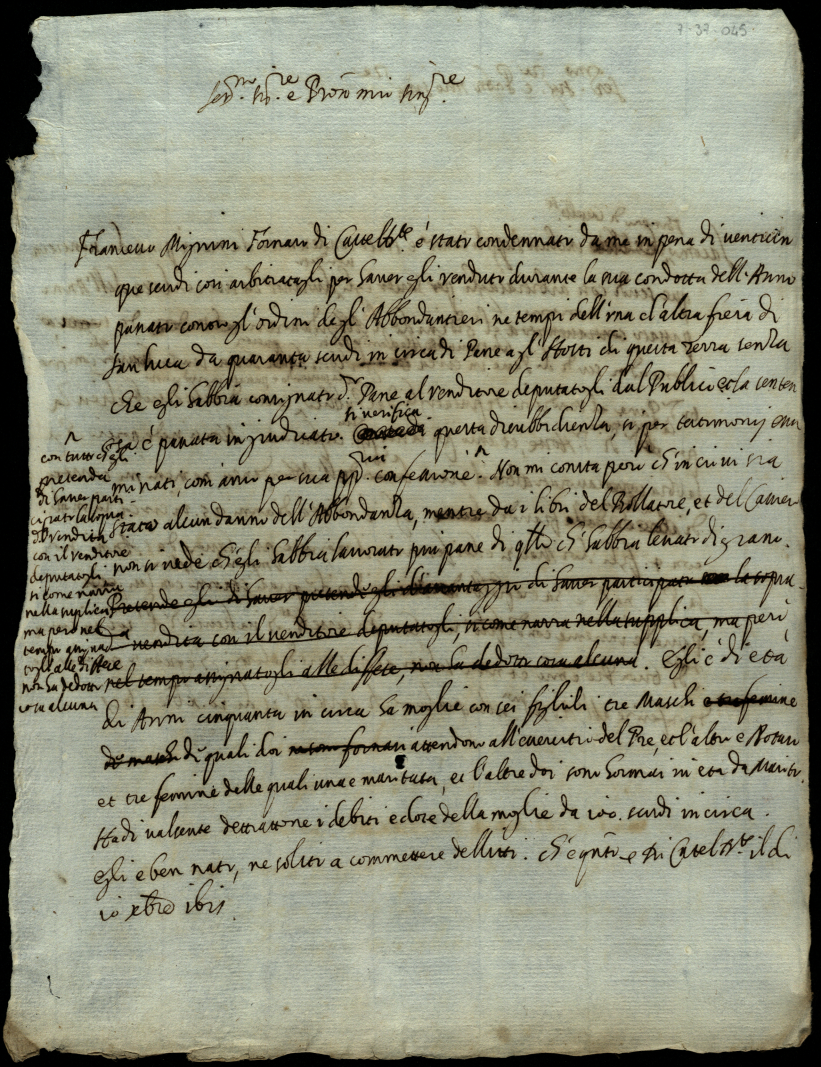 7-37-045
Ser.mo Sig.re e Pron mio Sing.re
Francesco Mignini Fornaro di Castelb.te é stato condennato da me in pena di venticin
que scudi così arbitratogli per haver egli venduto durante la sua condotta dell'Anno
passato contro gl'ordini degl'Abbondantieri ne tempi dell'una et l'altra fiera di
San Luca da quaranta scudi in circa di Pane agl'Hosti di questa Terra senza
che egli habbia consignato d.o Pane al venditore deputatogli dal Publico et la senten
za é passata in giudicato. si verifica questa disubbidienza, si per testimonij exa
minati, com'anco per sua pp.a confessione ^. Non mi consta però ch'in cio vi sia
stato alcun danno dell'Abbondanza, mentre da i libri del Bollatore, et del Camer
non si vede ch'egli habbia lavorato piu pane di q.llo ch'habbia levato di grano.
Pretende egli di haver participato la sopra
vendita con il venditore deputatogli, si come narra nella supplica, ma però
nel tempo assignatogli alle difese, non ha dedotto cosa alcuna. Egli é di età
di Anni cinquanta in circa ha moglie con sei figlioli tre Maschi e tre femine
de maschi di quali doi attendono all'essercitio del Pre, et l'altro e Notaro
et tre femine delle quali una e maritata, et l'altre doi sono hormai in età da Marito.
Ha di valsente detrattone i debiti e dote della moglie da 100. scudi in circa.
Egli e ben nato, ne solito a commettere delitti. Ch'é q.nto e di Castelb.te il di
10 xbre 1615.
^ con tutto ch'egli
pretenda
di haver parti
cipato la sopra
d.a vendita
con il venditore
deputatogli
si come narra
nella suplica,
ma però nel
tempo assignato
togli alle difese
non ha dedotto
cosa alcuna